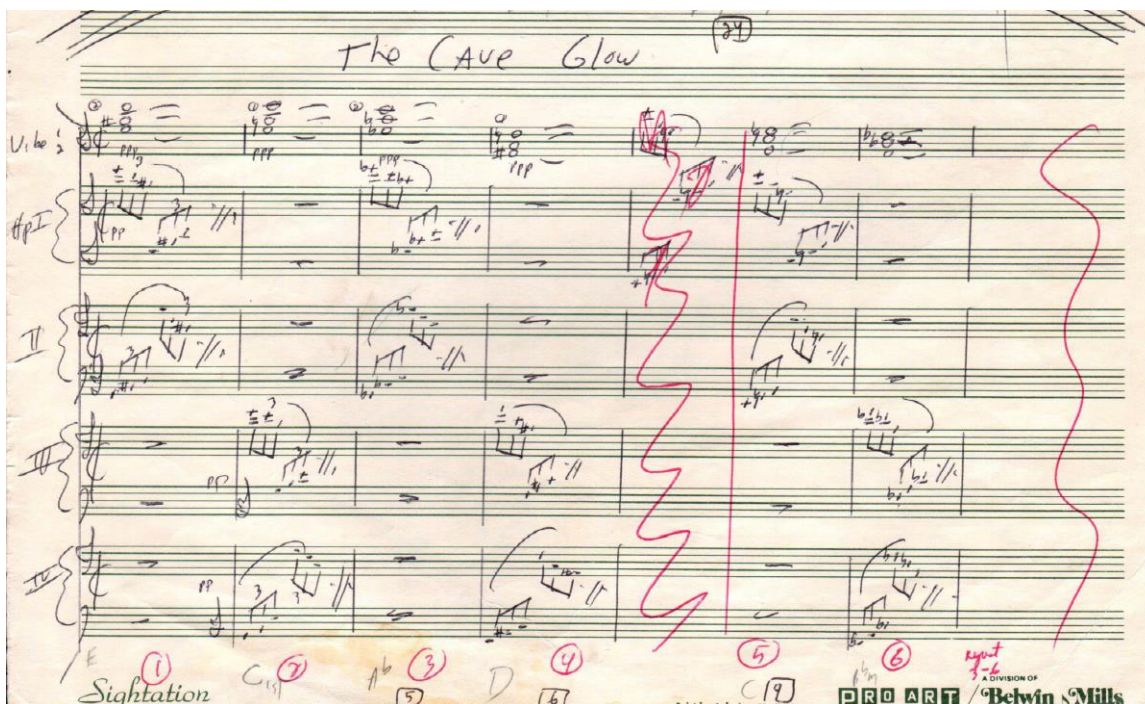 24
The Cave Glow
Vibe:
ppp ppp ppp ppp
Hp I
pp
II
III
pp
IV
pp
E 1 C 2 Ab 3 D 4 C 5 6 repeat 3-6
5 6 9
Sightation
A DIVISION OF
PRO ART / Belwin Mills